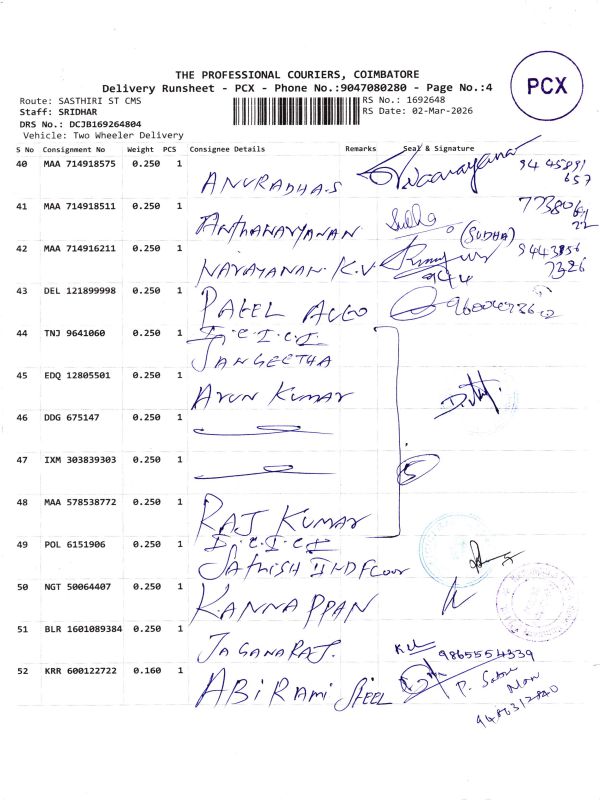 THE PROFESSIONAL COURIERS, COIMBATORE
Delivery Runsheet - PCX - Phone No.:9047080280 - Page No.:4
PCX
Route: SASTHIRI ST CMS
RS No.: 1692648
Staff: SRIDHAR
RS Date: 02-Mar-2026
DRS No.: DCJB169264804
Vehicle: Two Wheeler Delivery
S No Consignment No Weight PCS Consignee Details Remarks Seal & Signature
40 MAA 714918575 0.250 1 ANURADHA.S
41 MAA 714918511 0.250 1 ANTHANARYANAN Sudha
(SUDHA)
42 MAA 714916211 0.250 1 NARAYANAN. K.V
43 DEL 121899998 0.250 1 PATEL AUTO
44 TNJ 9641060 0.250 1 I.C.I.C.I
SANGEETHA
45 EDQ 12805501 0.250 1 ARUN KUMAR
46 DDG 675147 0.250 1
47 IXM 303839303 0.250 1
5
48 MAA 578538772 0.250 1 RAJ KUMAR
49 POL 6151906 0.250 1 I.C.I.C.I
SATHISH II ND FLOOR
50 NGT 50064407 0.250 1 KANNAPPAN
51 BLR 1601089384 0.250 1 JAGANARAJ.
9865554339
52 KRR 600122722 0.160 1 ABIRAMI STEEL
9486312840